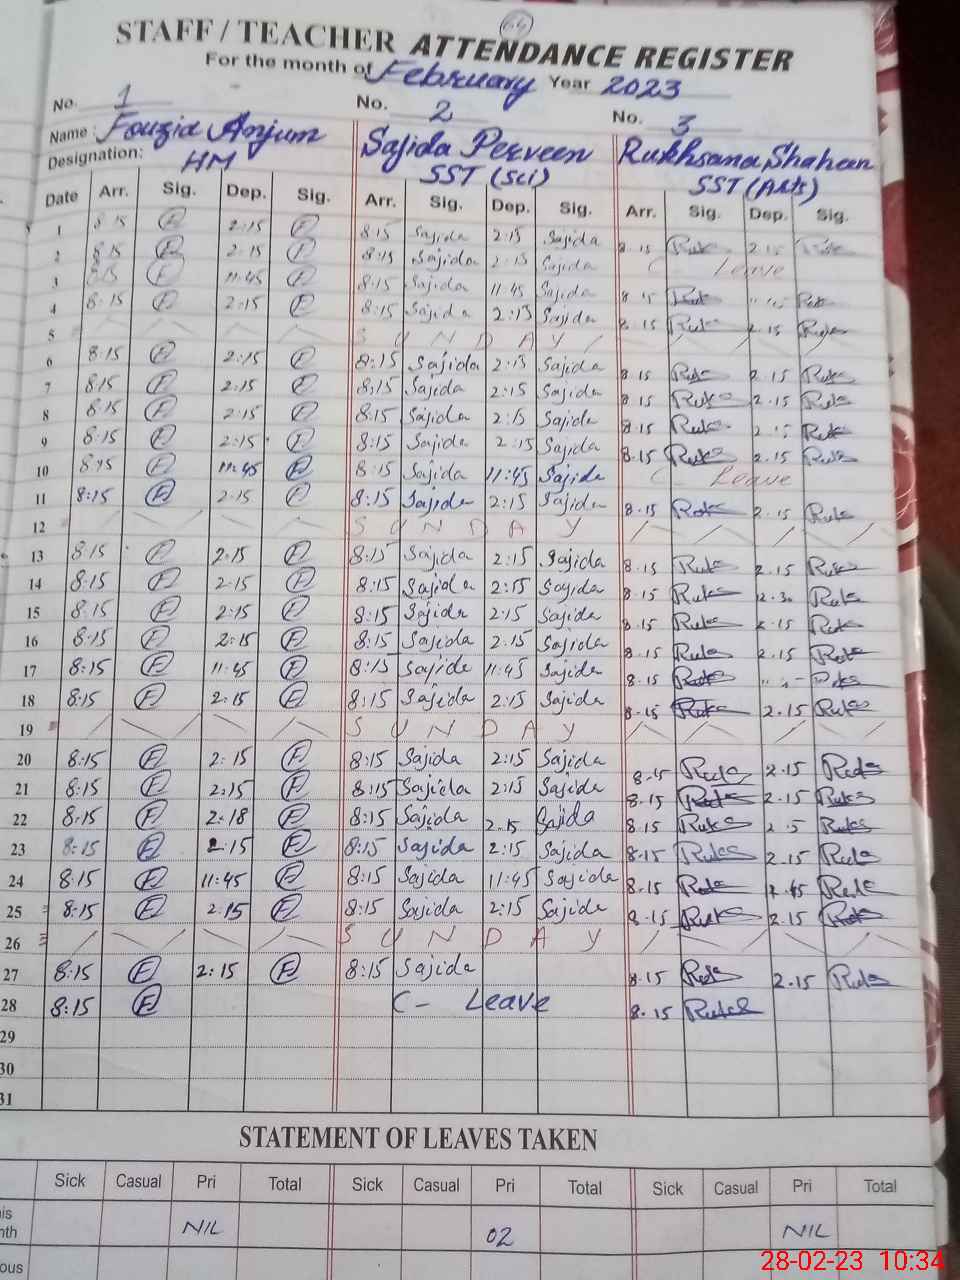 64
STAFF / TEACHER ATTENDANCE REGISTER
For the month of February Year 2023
No. 1 No. 2 No. 3
Name: Fouzia Anjum Sajida Perveen Rukhsana Shaheen
Designation: HM SST (Sci) SST (Arts)
Date Arr. Sig. Dep. Sig. Arr. Sig. Dep. Sig. Arr. Sig. Dep. Sig.
1 8:15 F 2:15 F 8:15 Sajida 2:15 Sajida 8.15 Ruks 2.15 Ruks
2 8:15 F 2:15 F 8:15 Sajida 2:15 Sajida C - Leave
3 8:15 F 11:45 F 8:15 Sajida 11:45 Sajida 8.15 Ruks Ruks
4 8:15 F 2:15 F 8:15 Sajida 2:15 Sajida 8.15 Ruks 2.15 Ruks
5 S U N D A Y
6 8:15 F 2:15 F 8:15 Sajida 2:15 Sajida 8.15 Ruks 2.15 Ruks
7 8:15 F 2:15 F 8:15 Sajida 2:15 Sajida 8.15 Ruks 2.15 Ruks
8 8:15 F 2:15 F 8:15 Sajida 2:15 Sajida 8.15 Ruks 2.15 Ruks
9 8:15 F 2:15 F 8:15 Sajida 2:15 Sajida 8.15 Ruks 2.15 Ruks
10 8:15 F 11:45 F 8:15 Sajida 11:45 Sajida C - Leave
11 8:15 F 2:15 F 8:15 Sajida 2:15 Sajida 8.15 Ruks 2.15 Ruks
12 S U N D A Y
13 8:15 F 2:15 F 8:15 Sajida 2:15 Sajida 8.15 Ruks 2.15 Ruks
14 8:15 F 2:15 F 8:15 Sajida 2:15 Sajida 8.15 Ruks 2.30 Ruks
15 8:15 F 2:15 F 8:15 Sajida 2:15 Sajida 8.15 Ruks 2.15 Ruks
16 8:15 F 2:15 F 8:15 Sajida 2:15 Sajida 8.15 Ruks 2.15 Ruks
17 8:15 F 11:45 F 8:15 Sajida 11:45 Sajida 8.15 Ruks Ruks
18 8:15 F 2:15 F 8:15 Sajida 2:15 Sajida 8.15 Ruks 2.15 Ruks
19 S U N D A Y
20 8:15 F 2:15 F 8:15 Sajida 2:15 Sajida 8.15 Ruks 2.15 Ruks
21 8:15 F 2:15 F 8:15 Sajida 2:15 Sajida 8.15 Ruks 2.15 Ruks
22 8:15 F 2:18 F 8:15 Sajida 2:15 Sajida 8.15 Ruks Ruks
23 8:15 F 2:15 F 8:15 Sajida 2:15 Sajida 8.15 Ruks 2.15 Ruks
24 8:15 F 11:45 F 8:15 Sajida 11:45 Sajida 8.15 Ruks Ruks
25 8:15 F 2:15 F 8:15 Sajida 2:15 Sajida 8.15 Ruks 2.15 Ruks
26 S U N D A Y
27 8:15 F 2:15 F 8:15 Sajida 8.15 Ruks 2.15 Ruks
28 8:15 F C - Leave 8.15 Ruks
29
30
31
STATEMENT OF LEAVES TAKEN
Sick Casual Pri Total Sick Casual Pri Total Sick Casual Pri Total
NIL 02 NIL
28-02-23 10:34